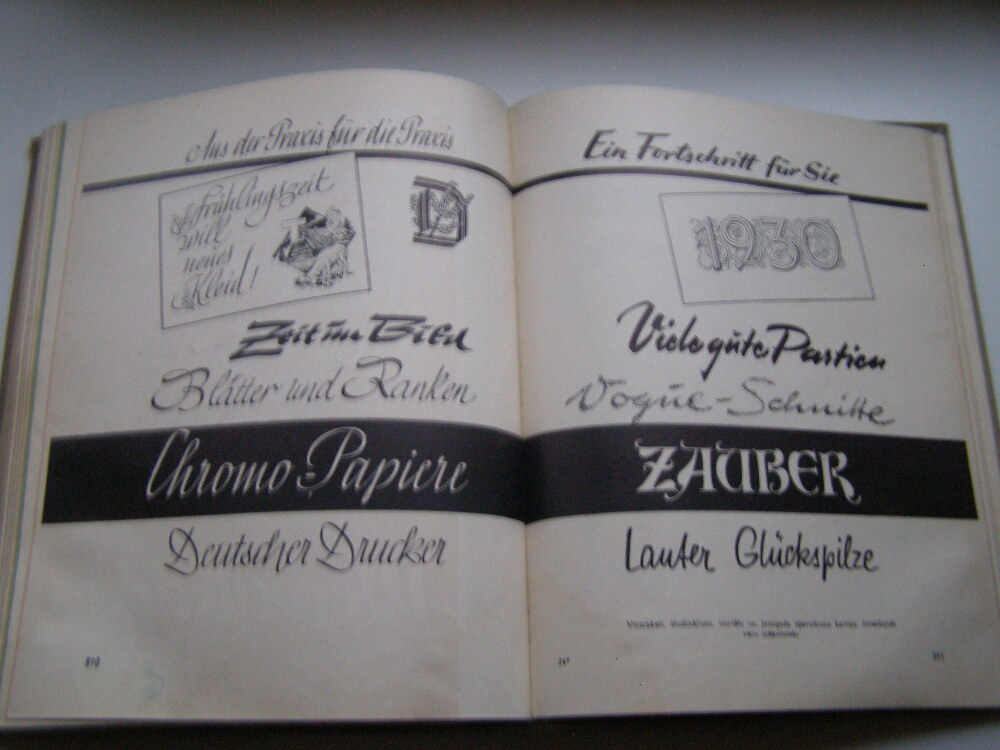 Aus der Praxis für die Praxis
Frühlingszeit
will
neues
Kleid!
D
Zeit im Bild
Blätter und Ranken
Chromo-Papiere
Deutscher Drucker
Ein Fortschritt für Sie
1930
Viele gute Partien
Vogue-Schnitte
ZAUBER
Lauter Glückspilze